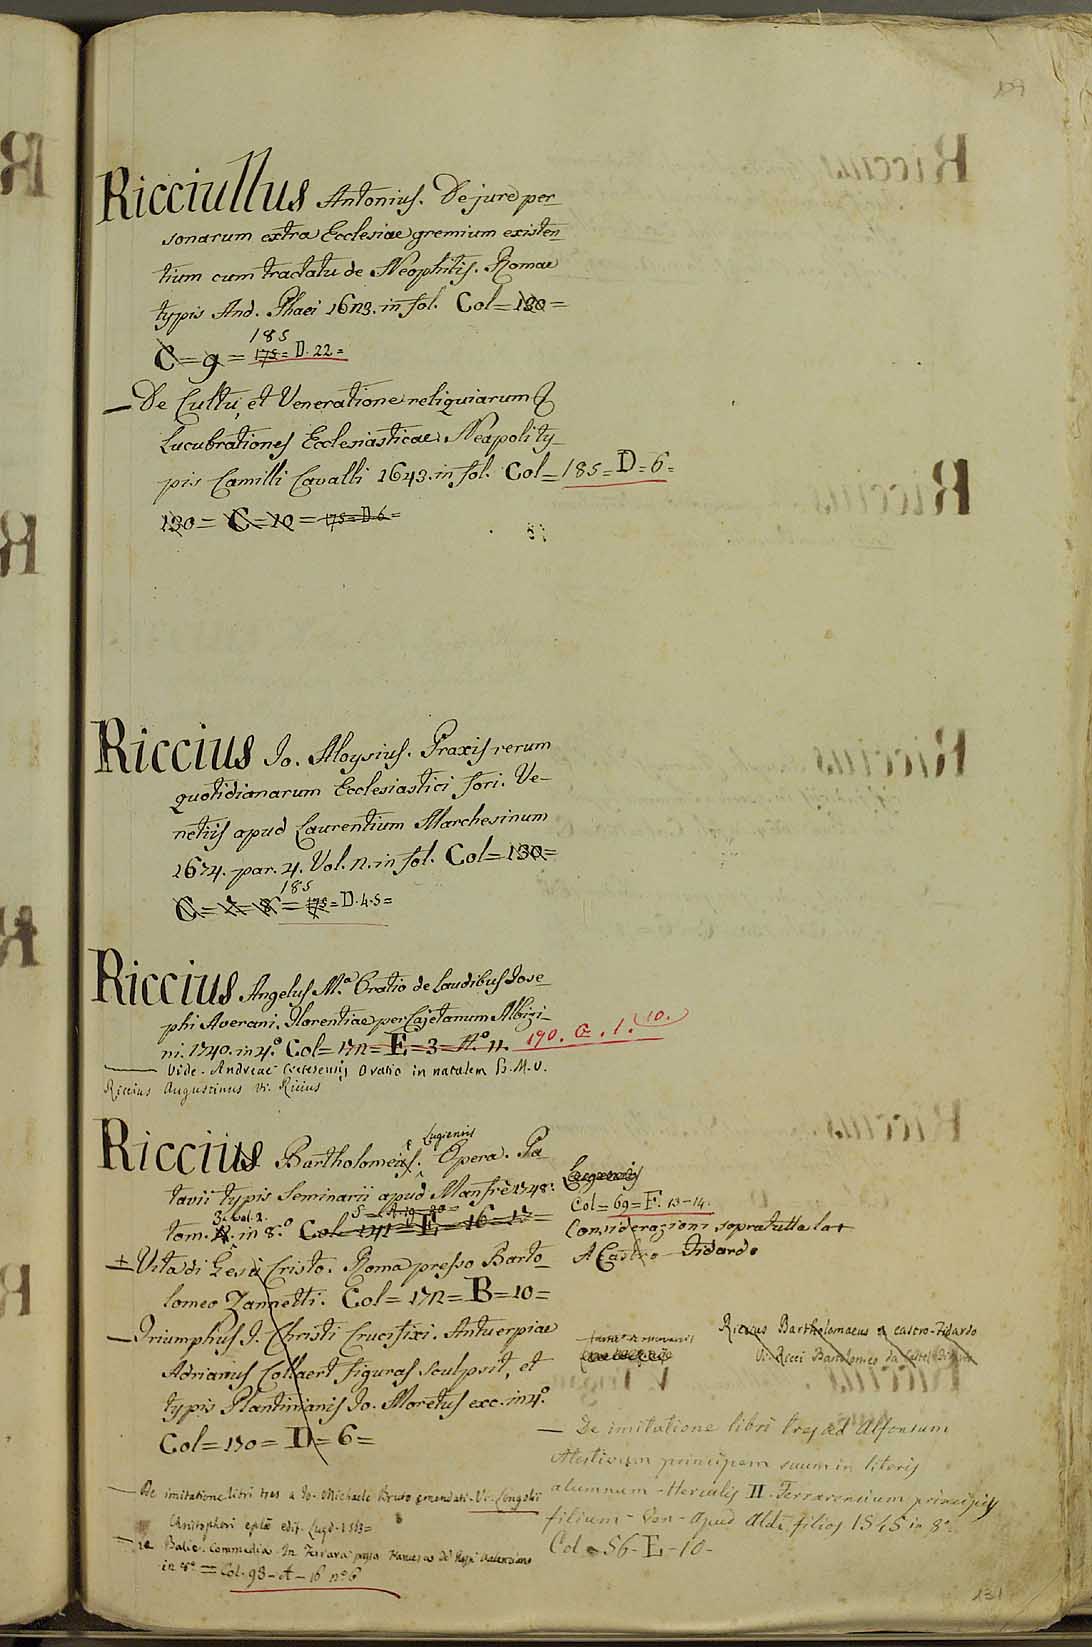 Ricciullus Antonius. De jure per_
sonarum extra Ecclesiae gremium existen_
tium cum tractatu de Neophitis. Romae
typis And. Phaei 1623. in fol. Col=130=
185
C=9= 175= D.22=
_ De Cultu, et Veneratione reliquiarum
Lucubrationes Ecclesiasticae. Neapoli ty_
pis Camilli Cavalli 1643. in fol. Col=185=D=6=
130= C=10= 175=D6=
Riccius Jo. Aloysius. Praxis rerum
quotidianarum Ecclesiastici fori. Ve_
netiis apud Laurentium Marchesinum
1674. par. 4. Vol. 2. in fol. Col=130=
185
C=7=8= 175=D.4.5=
Riccius Angelus M.ª Oratio de laudibus Jose_
phi Averani. Florentiae per Cajetanum Albizi_
ni. 1740. in 4.º Col=172=E=3= N.º 11. 190. G. 1. 10.
Vide. Andreae Oratio in natalem B.M.V.
Riccius Augustinus Vi. Ricius
Riccius Bartholomeus Lugiensis. Opera. Pa
tavii typis Seminarii apud Manfrè 1748.
tom. 3. vol. 2. in 8.º Col=141=E=16=17=
Col=69=F. 13-14.
Considerazioni sopra tutta la
A Castro Fidardo
+ Vita di Gesù Cristo. Roma presso Barto_
lomeo Zannetti. Col=172=B=10=
_ Triumphus J. Christi Crucifixi. Antuerpiae
Adrianus Collaert figuras sculpsit, et
typis Plantinianis Jo. Moretus exc. in 4.º
Col=130=D=6=
Riccius Bartholomaeus a castro-Fidardo
Vi. Ricci Bartolomeo da Castel Fidardo
_ De imitatione libri tres a Jo. Michaele Bruto emendati. Vi. Longolii
Christophori
_ Le Balie. Commedia. In Ferrara presso Francesco de' Rossi
in 8.º = Col. 98-A-16 nº6
_ De imitatione libri tres ad Alfonsum
Atestium principem suum in literis
alumnum - Herculis II. Ferrarensium principis
filium - Ven - apud Aldi filios 1545 in 8º
Col. 56-E-10-
131